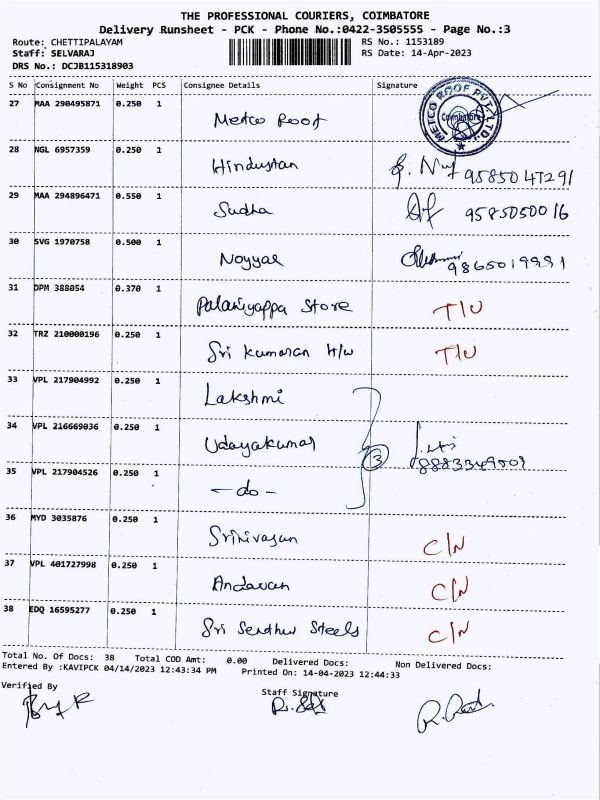 THE PROFESSIONAL COURIERS, COIMBATORE
Delivery Runsheet - PCK - Phone No.:0422-3505555 - Page No.:3
Route: CHETTIPALAYAM RS No.: 1153189
Staff: SELVARAJ RS Date: 14-Apr-2023
DRS No.: DCJB115318903
S No Consignment No Weight PCS Consignee Details Signature
27 MAA 290495871 0.250 1 Metco Roof METCO ROOF PVT. LTD. Coimbatore
28 NGL 6957359 0.250 1 Hindustan 9585047291
29 MAA 294896471 0.550 1 Sudha 9585050016
30 SVG 1970758 0.500 1 Noyyal 9865019991
31 DPM 388054 0.370 1 Palaniyappa Store T/U
32 TRZ 210000196 0.250 1 Sri Kumaran H/w T/U
33 VPL 217904992 0.250 1 Lakshmi
34 VPL 216669036 0.250 1 Udayakumar 3
35 VPL 217904526 0.250 1 -do-
36 MYD 3035876 0.250 1 Srinivasan C/N
37 VPL 401727998 0.250 1 Andavan C/N
38 EDQ 16595277 0.250 1 Sri Senthur Steels C/N
Total No. Of Docs: 38 Total COD Amt: 0.00 Delivered Docs: Non Delivered Docs:
Entered By :KAVIPCK 04/14/2023 12:43:34 PM Printed On: 14-04-2023 12:44:33
Verified By Staff Signature